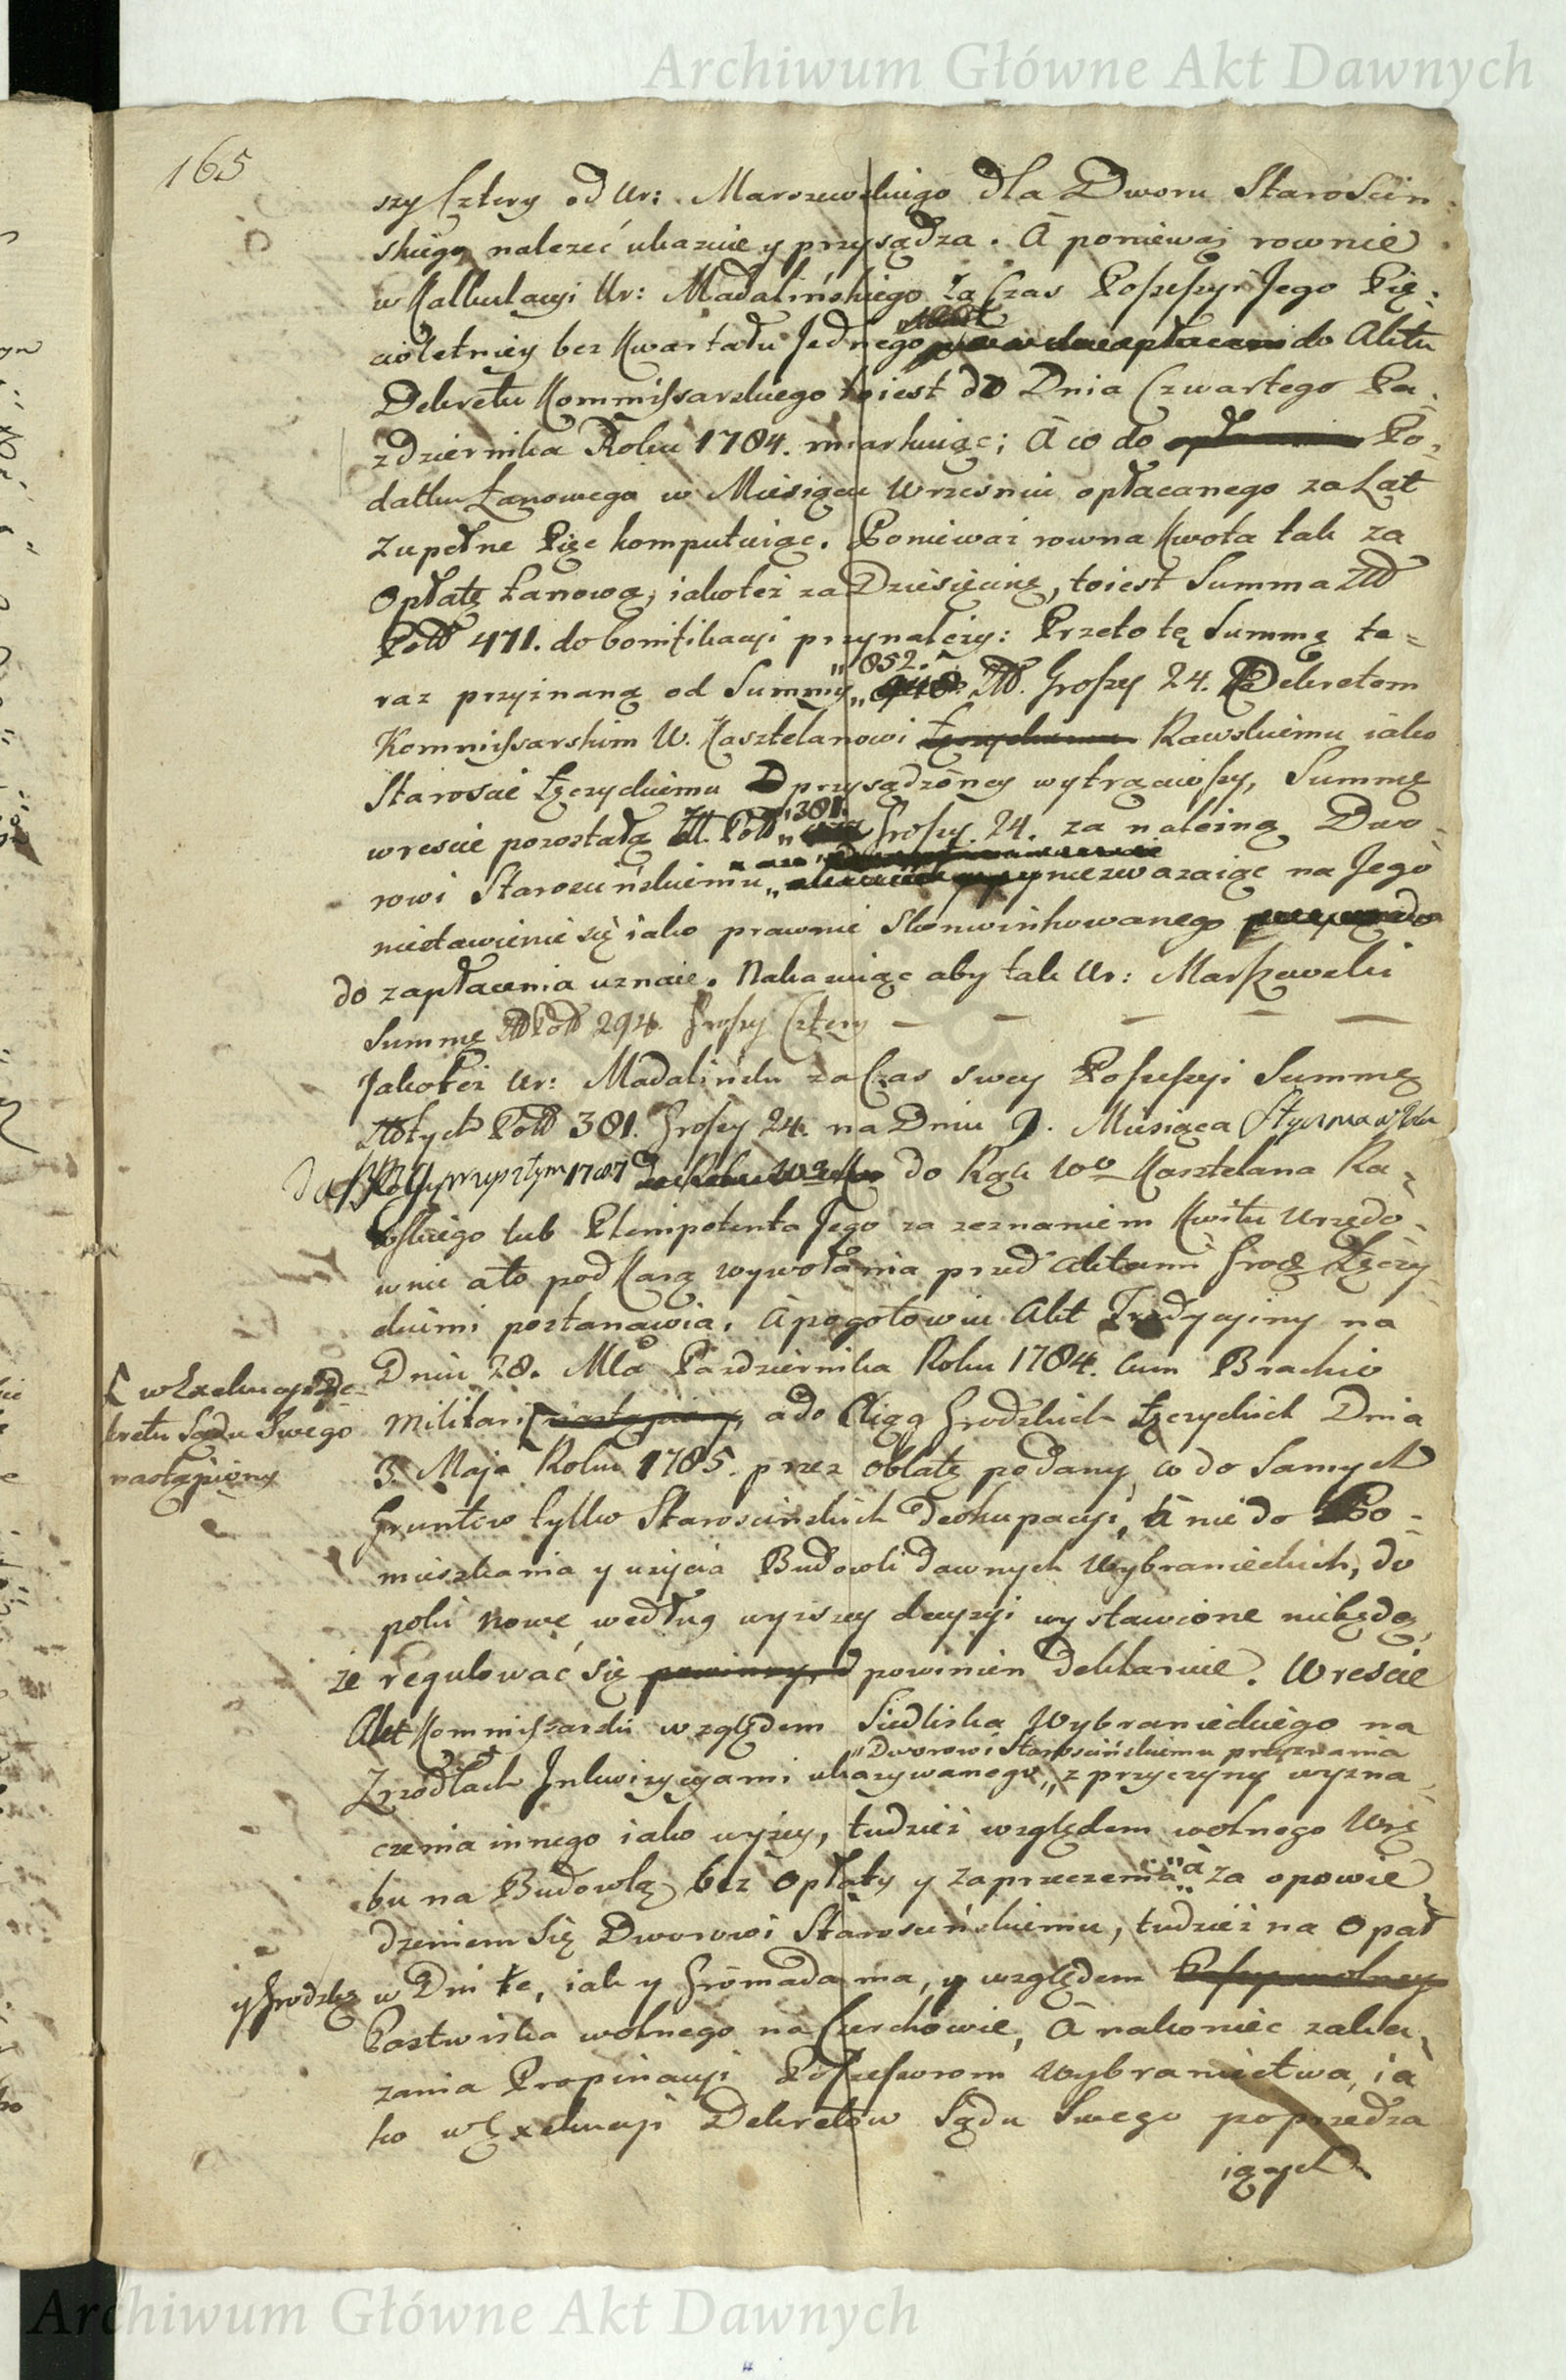 Archiwum Główne Akt Dawnych
165
szy Cztery od Ur: Marszewskiego dla Dworu Starościn-
skiego należeć ukazuie y przysądza. A ponieważ rownie
w Kalkulacyi Ur: Madalińskiego za Czas Possessyi Jego Pię-
cioletniey bez Kwartału Jednego do Aktu
Dekretu Kommissarskiego toiest do Dnia Czwartego Pa-
zdziernika Roku 1784. miarkuiąc; A co do Po-
datku Łanowego w Miesiącu Wrzesniu opłacanego za Lat
Zupełne Pięc komputuiąc. Ponieważ rowna Kwota tak za
Opłatę Łanową, iakoteż za Dziesięcinę, toiest Summa Zł
Poll 471. do bonifikacyi przynależy: Przeto tę Summę te-
raz przyznaną od Summy „852. Zł. Groszy 24. Dekretem
Kommissarskim W. Kasztelanowi Rawskiemu iako
Staroscie Łęczyckiemu przysądzoney wytrąciwszy, Summę
wreście pozostałą Zł. Poll „381. Groszy 24. za należną Dwo-
rowi Starościńskiemu niezważaiąc na Jego
niestawienie się iako prawnie Skonwinkowanego
do zapłacenia uznaie. Nakazuiąc aby tak Ur: Marszewski
Summę Zł Poll 294. Groszy Cztery — — — — —
Jakoteż Ur: Madaliński za Czas swey Possessyi Summę
Złotych Poll 381. Groszy 24. na Dniu 9. Miesiąca Stycznia w Roku
przyszłym 1787 do Rąk Wo Kasztelana Ra-
wskiego lub Plenipotenta Jego za zeznaniem Kwitu Urzędo-
wnie a to pod Karą wywołania przed Aktami Grod Łęczy-
ckiemi postanawia. A pogotowiu Akt Tradycyiny na
Dniu 28. Mca Pazdziernika Roku 1784. Cum Brachio
[ w Exekucyi De-
kretu Sądu Swego
nastąpiony
Militari [nastąpiony, a do Xiąg Grodzkich Łęczyckich Dnia
3. Maja Roku 1785. przez Oblatę podany, co do Samych
Gruntow tylko Starościńskich Deokupacyi, A nie do Po-
mieszkania y użycia Budowli dawnych Wybranieckich, do
poki nowe według wyższey decyzyi wystawione nie będą,
że regulować się powinien deklaruie. Wreście
Akt Kommissarski względem Siedliska Wybranieckiego na
„Dworowi Starościńskiemu przyznania
Zrzodłach Inkwizycyami ukazywanego „ z przyczyny wyzna-
czenia innego iako wyżey, tudzież względem wolnego Wrę
bu na Budowlą bez Opłaty y zaprzeczenia „a za opowie
dzeniem się Dworowi Starościńskiemu, tudzież na Opał
y Grodzbę w Dni te, iak y Gromada ma, y względem
Pastwiska wolnego na Czerchowie, A nakoniec zaka-
zania Propinacyi Possessorom Wybraniectwa, ia
ko w Exekucyi Dekretow Sądu Swego poprzedza
iących
Archiwum Główne Akt Dawnych